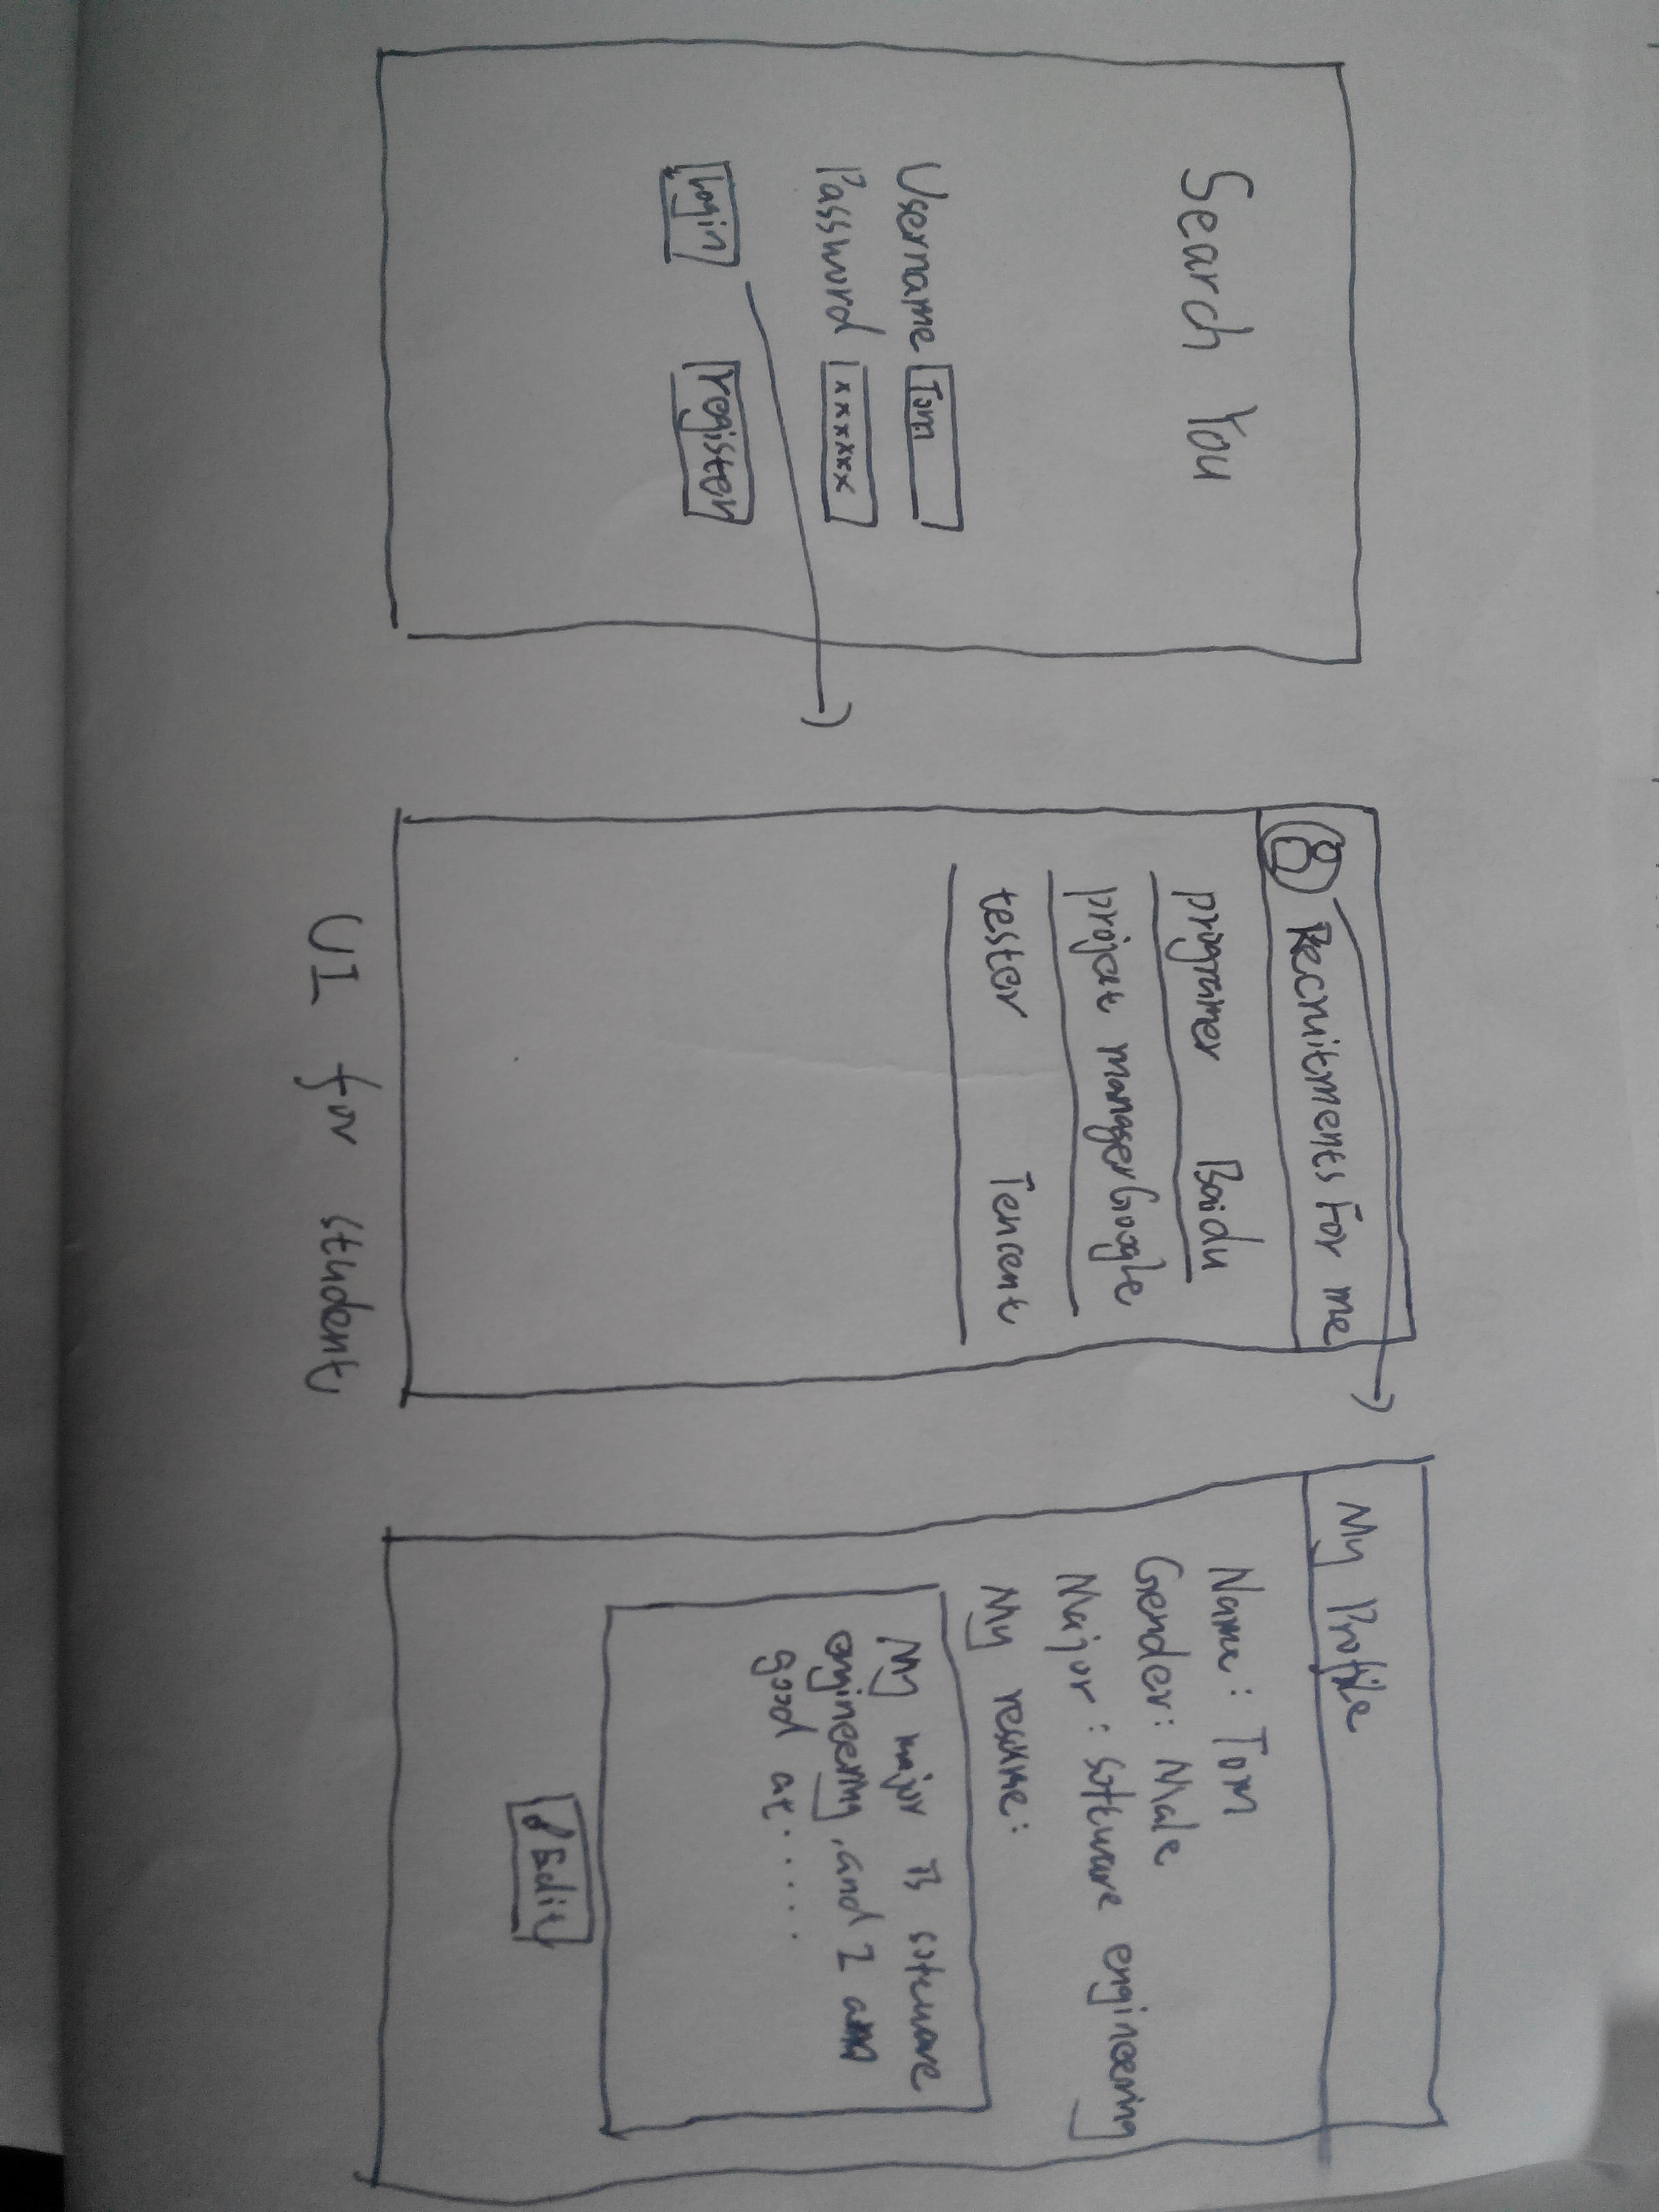 Search You
Username Tom
Password xxxxxx
Login register
Recruitments For me
programer Baidu
project manager Google
tester Tencent
My Profile
Name: Tom
Gender: Male
Major: software engineering
My resume:
My major is software
engineering, and I am
good at.....
Edit
UI for student